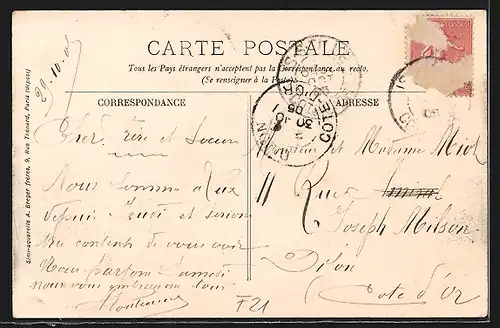 CARTE POSTALE
Tous les Pays étrangers n'acceptent pas la Correspondance au recto.
(Se renseigner à la Poste)
CORRESPONDANCE
ADRESSE
29-10-05
Simi-aquarelle A. Breger frères, 9, Rue Thénard, Paris (déposé)
Cher frère et Soeur
Nous sommes a
depuis Jeudi et serions
très contents de vous voir
Nous partons Samedi
nous vous embrassons tous
Monsieur et Madame Miot
Rue
Joseph Milson
Dijon
Cote d'Or
F21
DIJON
COTE-D'OR
30
10
05